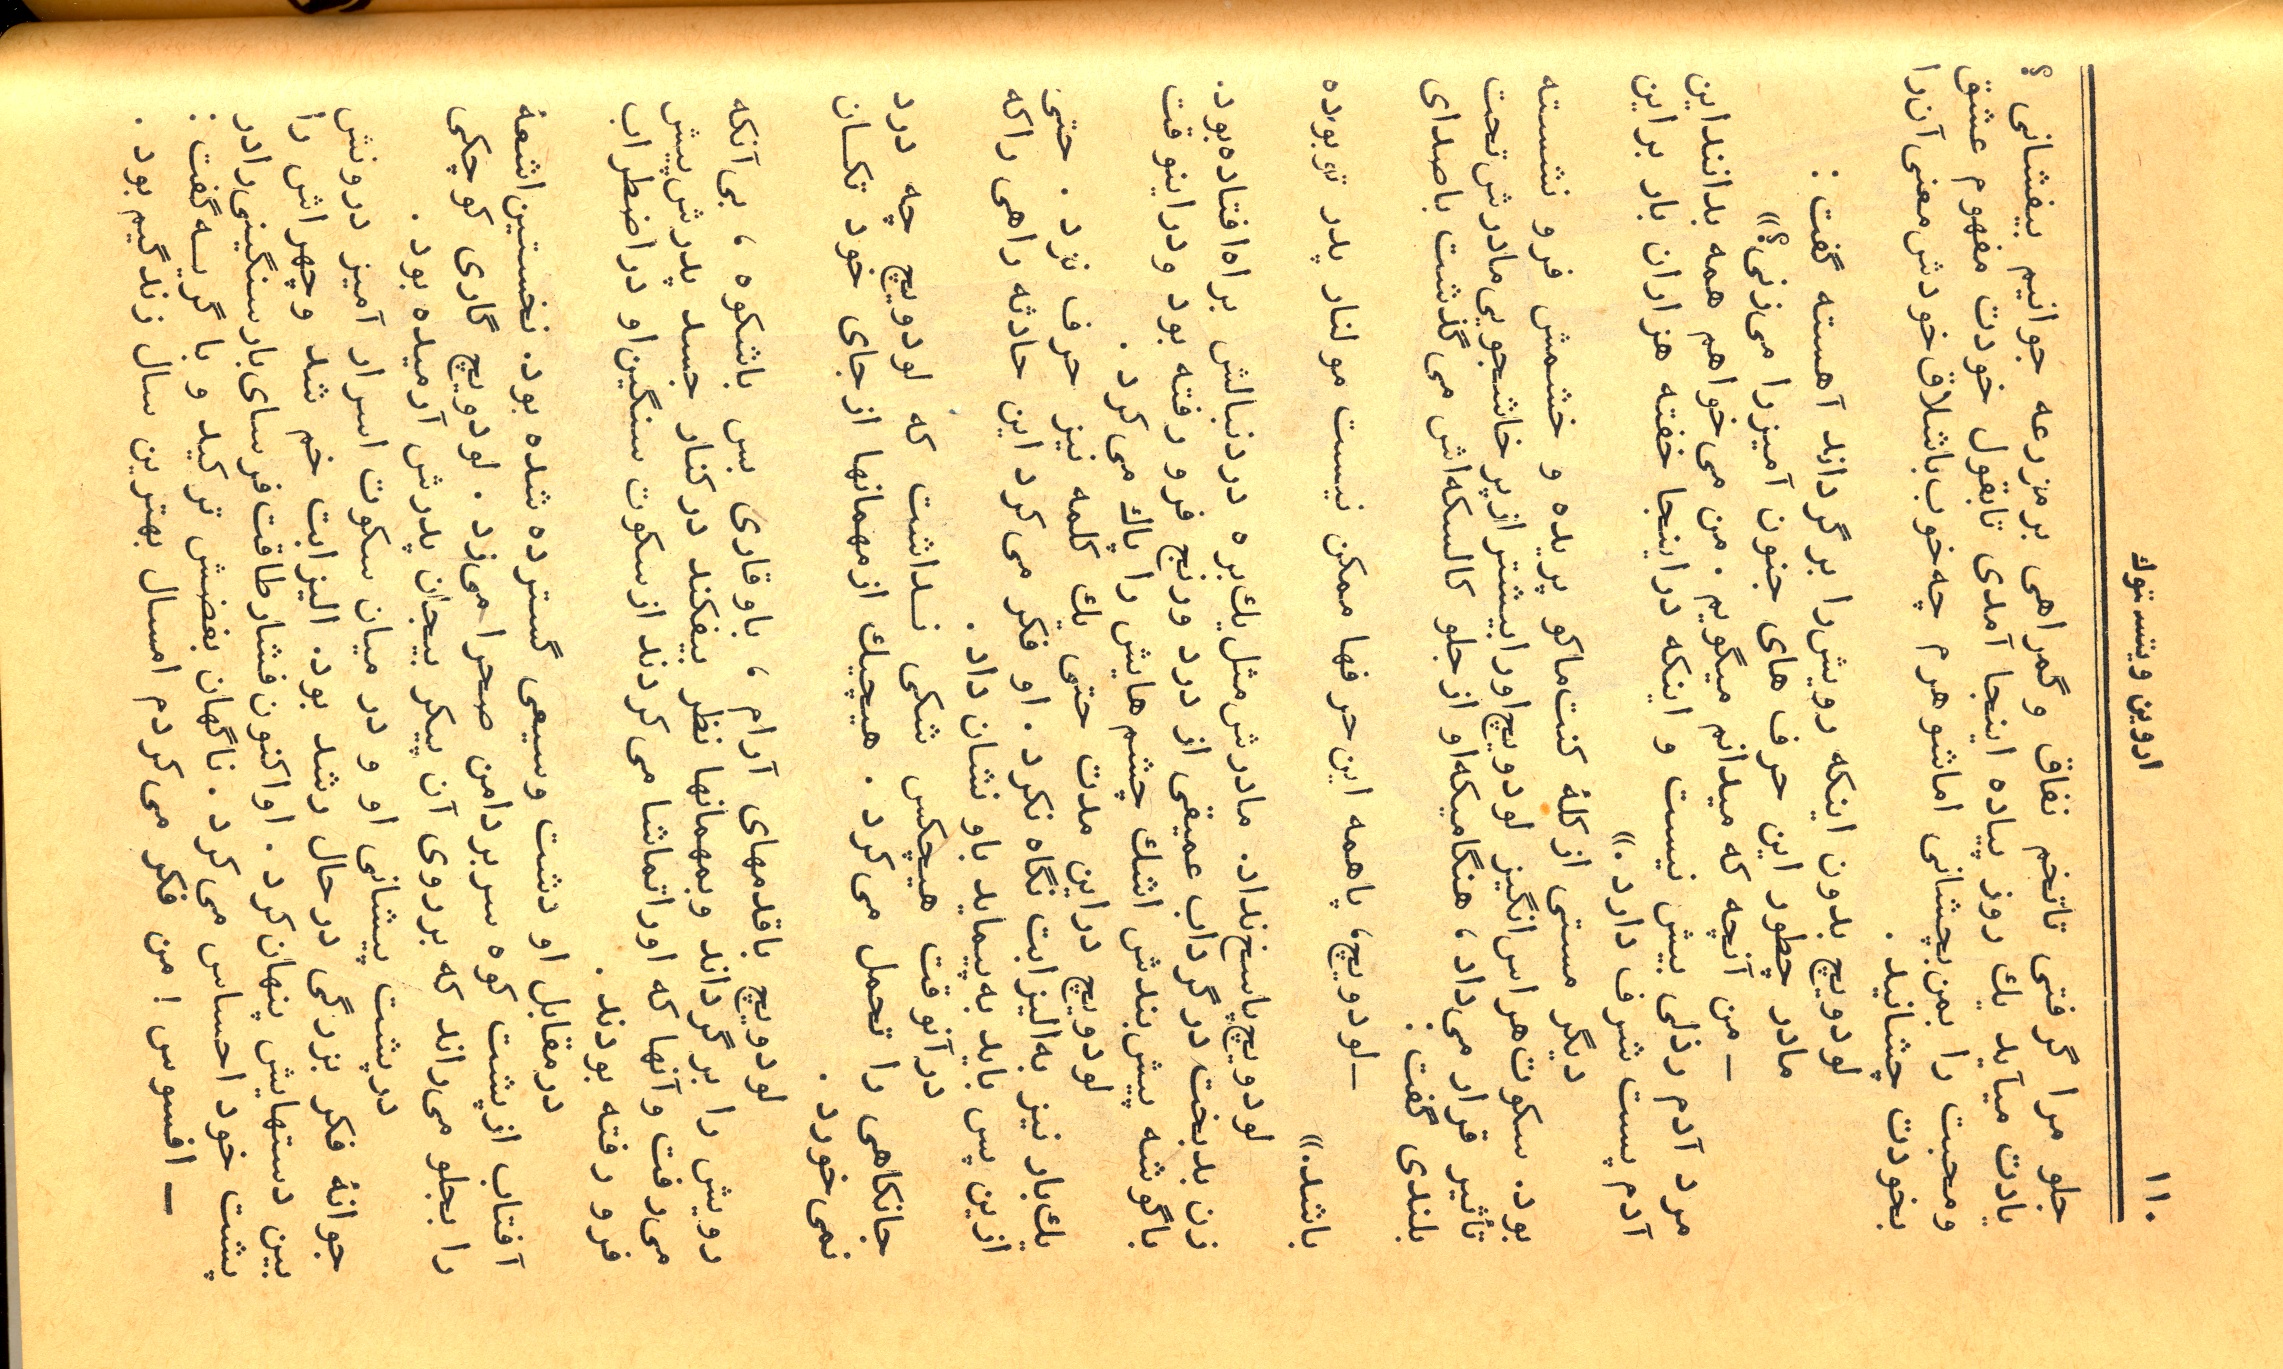 ۱۱۰
اروین ویتستوك
جلو مرا گرفتی تاتخم نفاق وگمراهی برمزرعه جوانیم بیفشانی؟
یادت میآید یك روز پیاده اینجا آمدی تابقول خودت مفهوم عشق
ومحبت را بمن‌بچشانی اماشوهرم چه‌خوب‌باشلاق‌خودش‌معنی‌آن‌را
بخودت چشانید.
لودویچ بدون اینکه رویش‌را برگرداند آهسته گفت:
مادر چطور این حرف های جنون آمیزرا می‌زنی؟»
– من آنچه که میدانم میگویم. من می‌خواهم همه بداننداین
مرد آدم رذلی بیش نیست و اینکه دراینجا خفته هزاران بار براین
آدم پست شرف دارد.»
دیگر مستی از کلهٔ کنت‌ماکو پریده و خشمش فرو نشسته
بود. سکوت‌هراس‌انگیز لودویچ‌اورابیشتراز‌پرخاشجویی‌مادرش‌تحت
تأثیر قرار می‌داد، هنگامیکه‌او ازجلو کالسکه‌اش می‌گذشت باصدای
بلندی گفت:
– لودویچ، باهمه این‌حرفها ممکن نیست مولنار پدر توبوده
باشد.»
لودویچ‌پاسخ‌نداد. مادرش‌مثل‌یك‌بره دردنبالش براه‌افتاده‌بود.
زن بدبخت درگرداب عمیقی از درد ورنج فرو رفته بود ودراینوقت
باگوشه پیش‌بندش اشك چشم‌هایش را پاك می‌کرد.
لودویچ دراین مدت حتی یك کلمه نیز حرف نزد. حتی
یك‌بار نیز به‌الیزابت نگاه نکرد. او فکر می‌کرد این حادثه راهی راکه
ازین پس باید به‌پیماید باو نشان داد.
درآنوقت هیچکس شکی نداشت که لودویچ چه درد
جانکاهی را تحمل می‌کرد. هیچیك ازمهمانها ازجای خود تکان
نمی‌خورد.
لودویچ باقدمهای آرام، باوقاری بس باشکوه، بی‌آنکه
رویش را برگرداند وبمهمانها نظر بیفکند درکنار جسد پدرش‌پیش
می‌رفت وآنها که اوراتماشا می‌کردند ازسکوت سنگین‌او دراضطراب
فرو رفته بودند.
درمقابل او دشت وسیعی گسترده شده بود. نخستین‌اشعهٔ
آفتاب ازپشت کوه سر بردامن صحرا می‌زد. لودویچ گاری کوچکی
را بجلو می‌راند که برروی آن پیکر بیجان پدرش آرمیده بود.
درپشت پیشانی او و در میان سکوت اسرار آمیز درونش
جوانهٔ فکر بزرگی درحال رشد بود. الیزابت خم شد وچهراش را
بین دستهایش پنهان‌کرد. اواکنون‌فشارطاقت‌فرسای‌بارسنگینی‌رادر
پشت خود احساس می‌کرد. ناگهان بغضش ترکید و با گریه گفت:
– افسوس! من فکر می‌کردم امسال بهترین سال زندگیم بود.